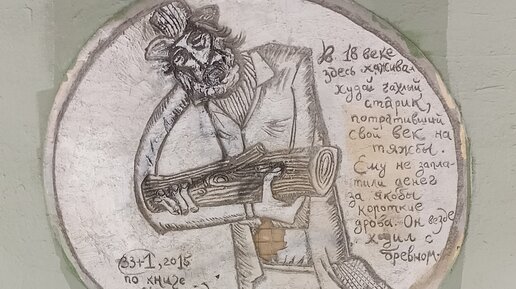 В 18 веке
здесь хажива-
худой чахлый
старик,
потративший
свой век на
тяжбы.
Ему не запла-
тили денег
за якобы
короткие
дрова. Он везде
ходил с
бревном.
33+1, 2015
по книге